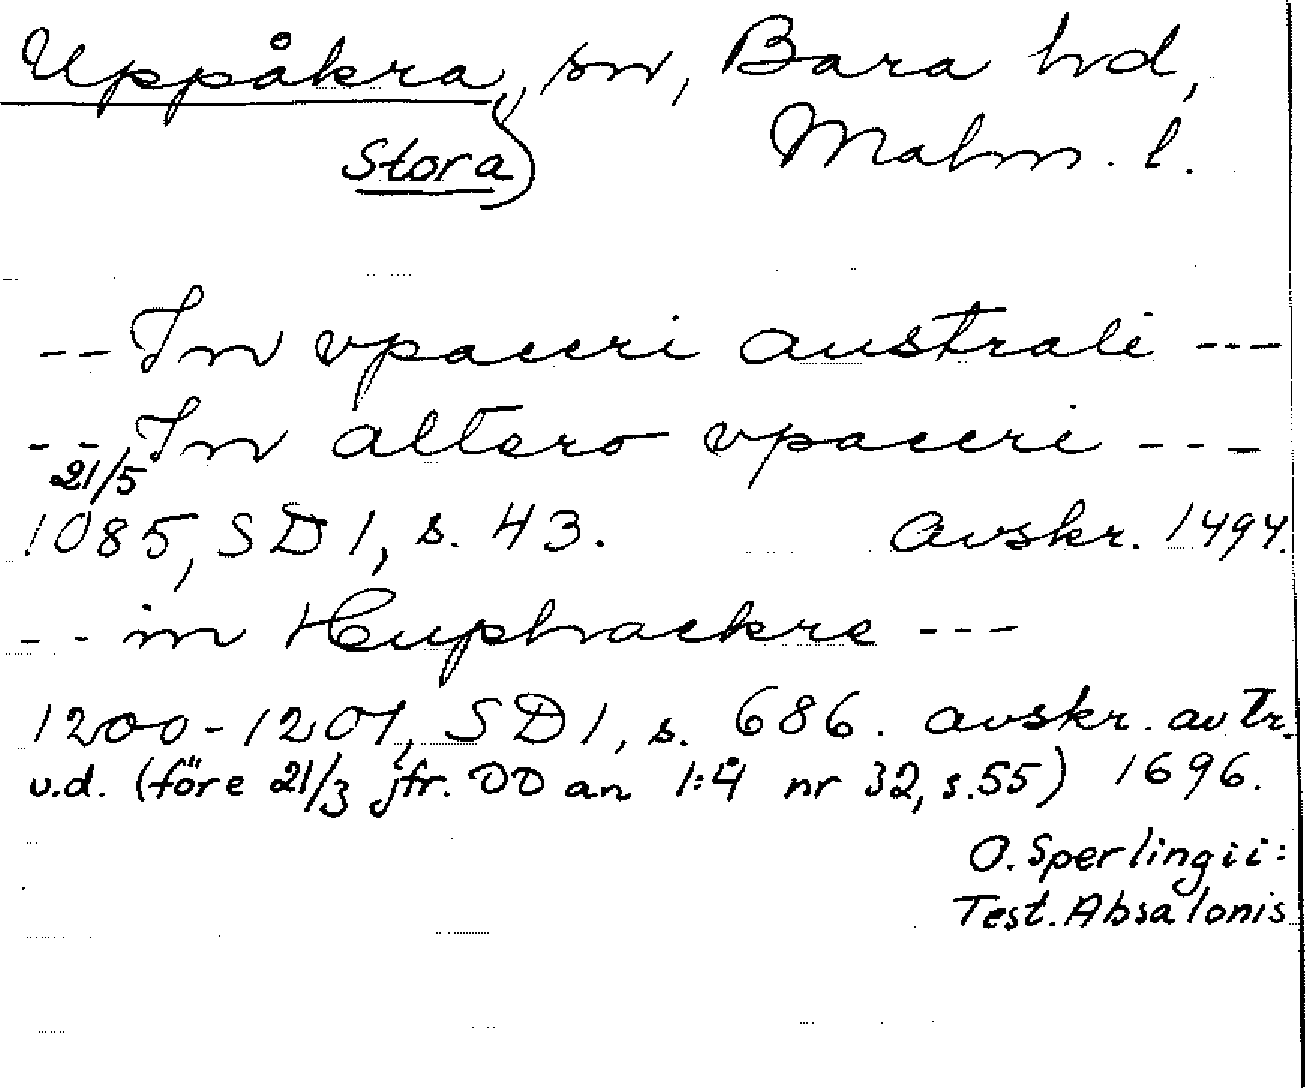 Uppåkra, sn, Bara hd,
Stora) Malm. l.
-- In vpaccri australi ---
-- In altero vpaccri ---
21/5
1085, SD 1, s. 43. avskr. 1494.
-- in Huphackre ---
1200-1201, SD 1, s. 686. avskr. av tr.
u.d. (före 21/3 jfr. DD an 1:4 nr 32, s.55) 1696.
O. Sperlingii:
Test. Absalonis